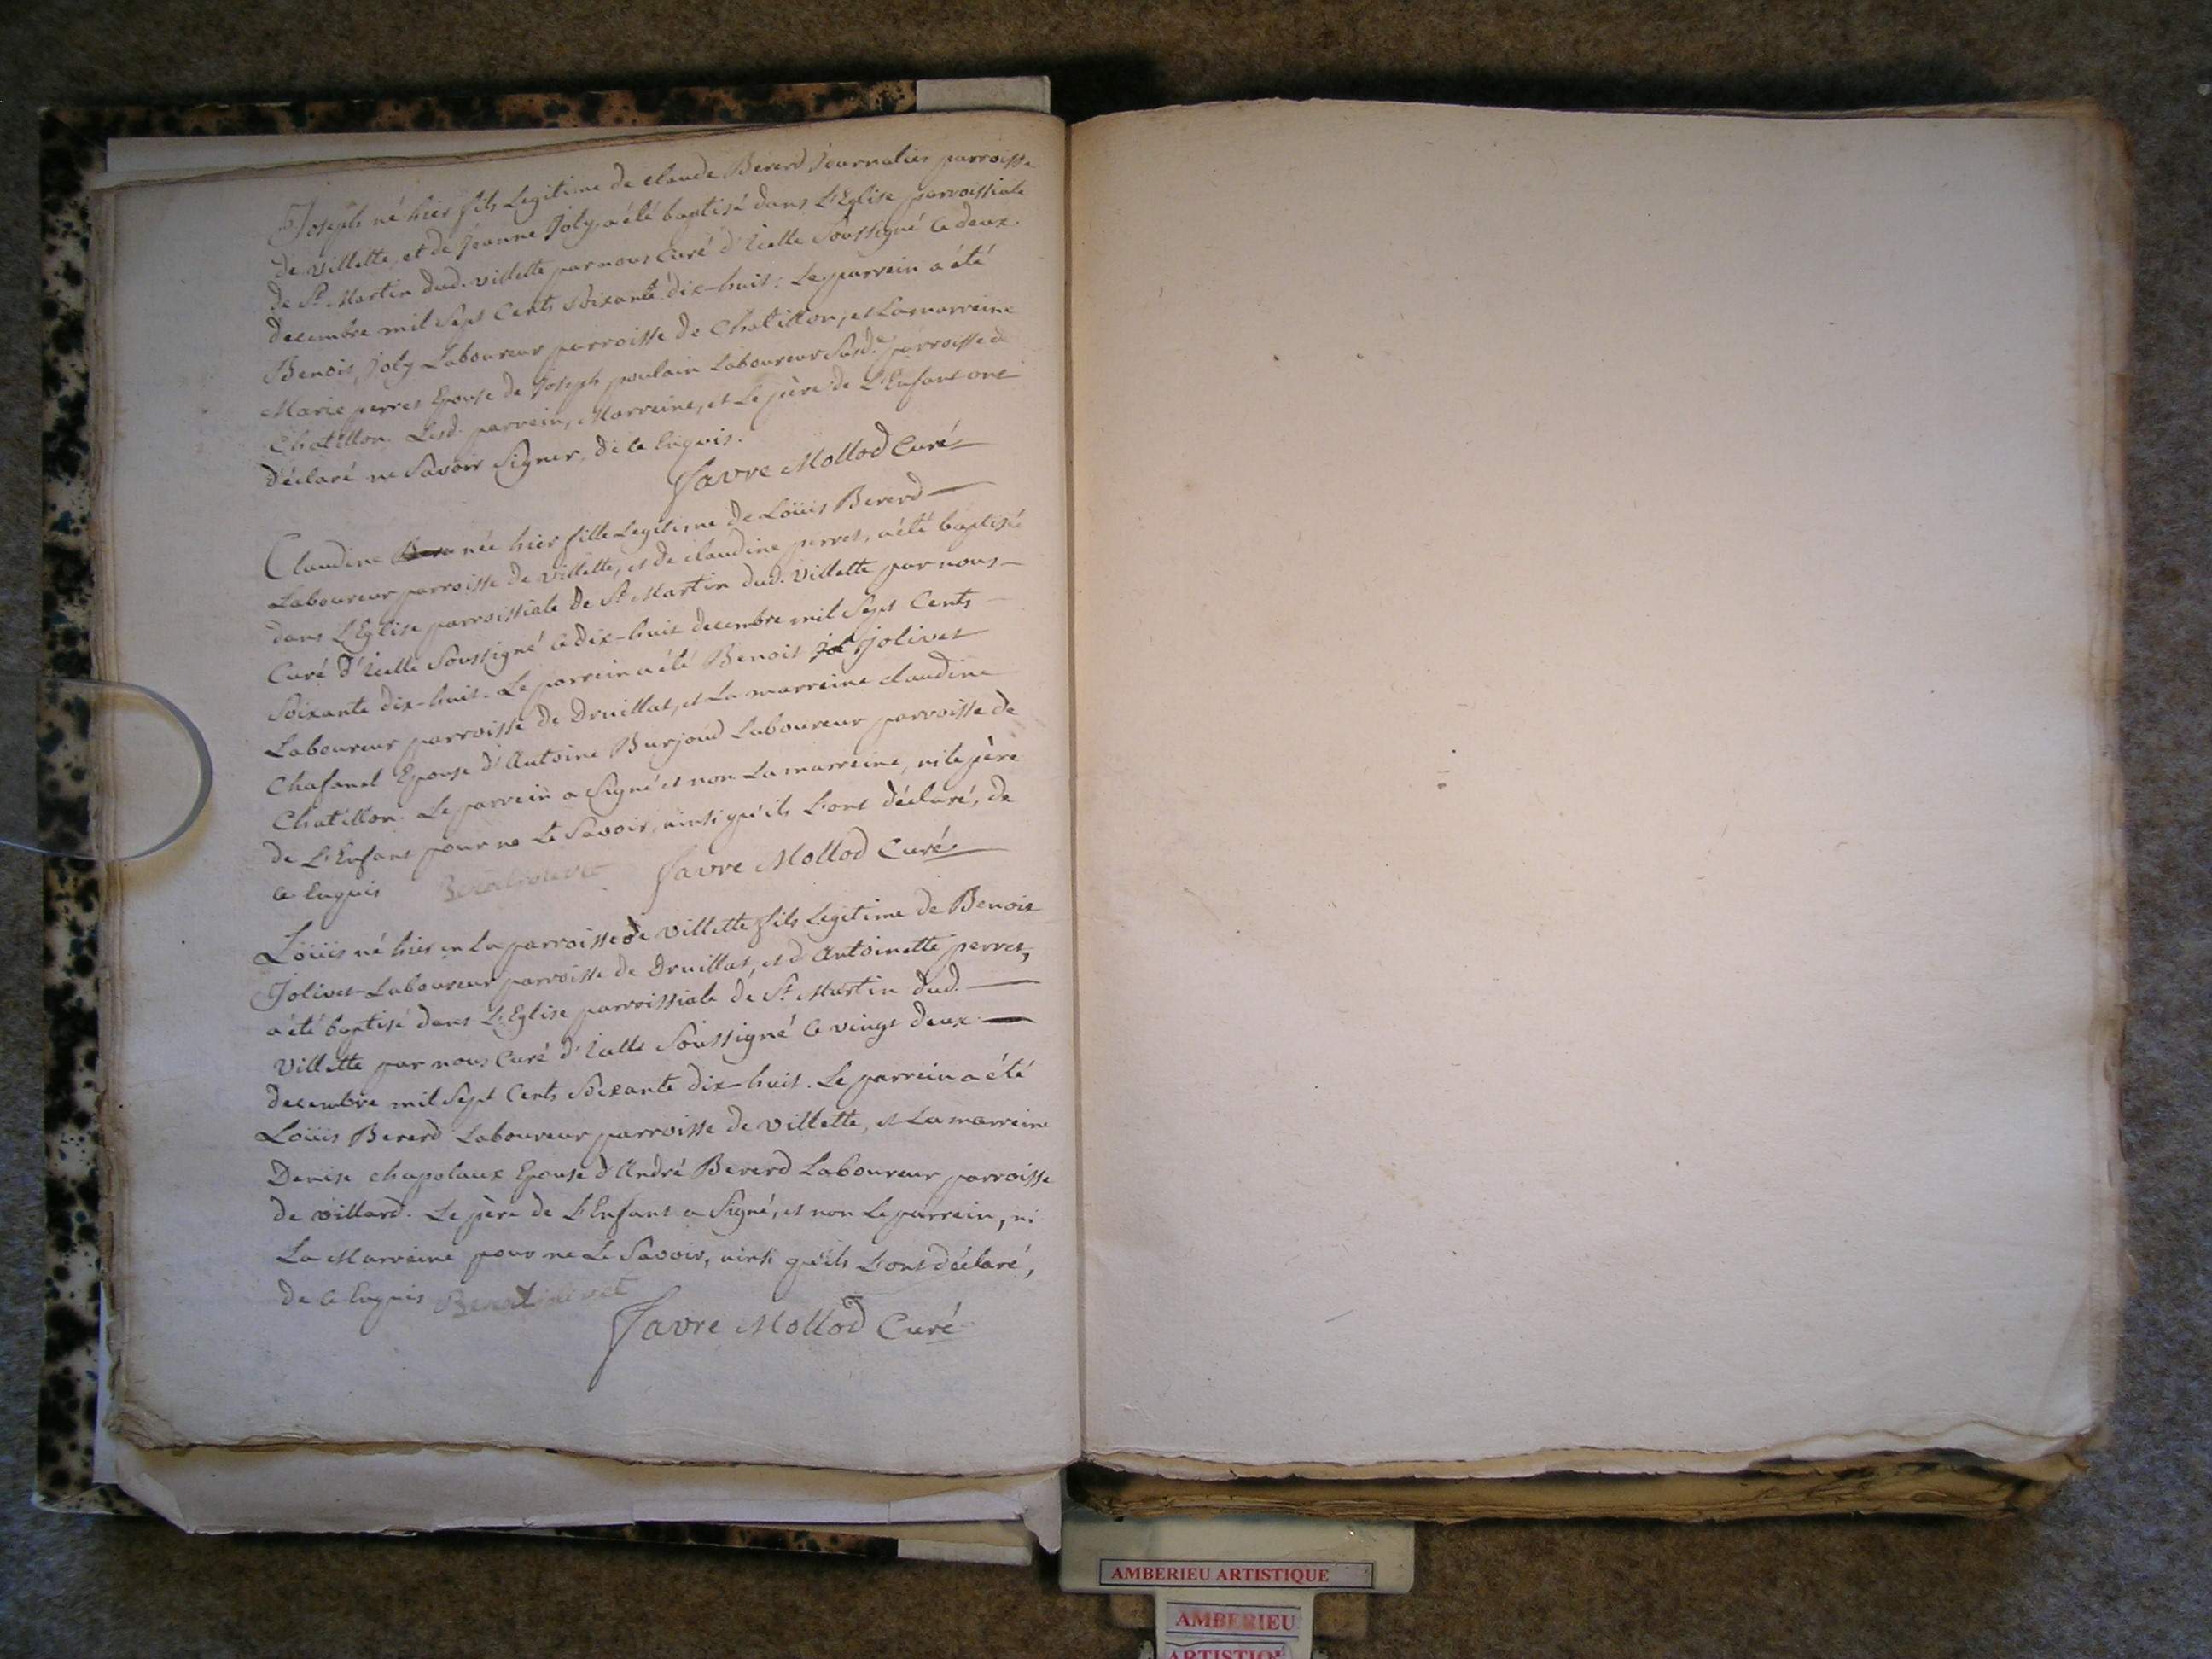 Joseph né hier fils Legitime de claude Bererd Journalier parroisse
de villette, et de Jeanne Joly, a été baptisé dans L'Eglise parroissiale
de St. Martin dud. villette par nous Curé d'Icelle Soussigné Ce deux.
decembre mil Sept Cents Soixante dix-huit: Le parrein a été
Benoit Joly Laboureur parroisse de Chatillon, et La marreine
Marie perret Epouse de Joseph poulain Laboureur Susd.e parroisse de
Chatillon. Lesd. parrein, Marreine, et Le père de L'Enfant ont
déclaré ne Savoir Signer, de ce Enquis.
Favre Mollod Curé
Claudine née hier fille Legitime de Loüis Bererd
Laboureur parroisse de villette, et de claudine perret, a été baptisée
dans L'Eglise parroissiale de St. Martin dud. villette par nous
Curé d'Icelle Soussigné Ce dix-huit decembre mil Sept Cents
Soixante dix-huit. Le parrein a été Benoit jolivet
Laboureur parroisse de Druillat, et La marreine claudine
Chafanel Epouse d'Antoine Burjoud Laboureur parroisse de
Chatillon. Le parrein a Signé et non La marreine, ni le père
de L'Enfant pour ne Le Savoir, ainsi qu'ils L'ont déclaré, de
ce Enquis Favre Mollod Curé
Loüis né hier en La parroisse de villette fils Legitime de Benoit
Jolivet Laboureur parroisse de Druillat, et d'Antoinette perret,
a été baptisé dans L'Eglise parroissiale de St. Martin dud.
Villette par nous Curé d'Icelle Soussigné Ce vingt deux
decembre mil Sept Cents Soixante dix-huit. Le parrein a été
Loüis Bererd Laboureur parroisse de villette, et La marreine
Denise chapolaux Epouse d'André Bererd Laboureur parroisse
de villard. Le père de L'Enfant a Signé, et non Le parrein, ni
La Marreine pour ne Le Savoir, ainsi qu'ils L'ont déclaré,
de ce Enquis Benoit jolivet
Favre Mollod Curé
AMBERIEU ARTISTIQUE
AMBERIEU
ARTISTIQUE